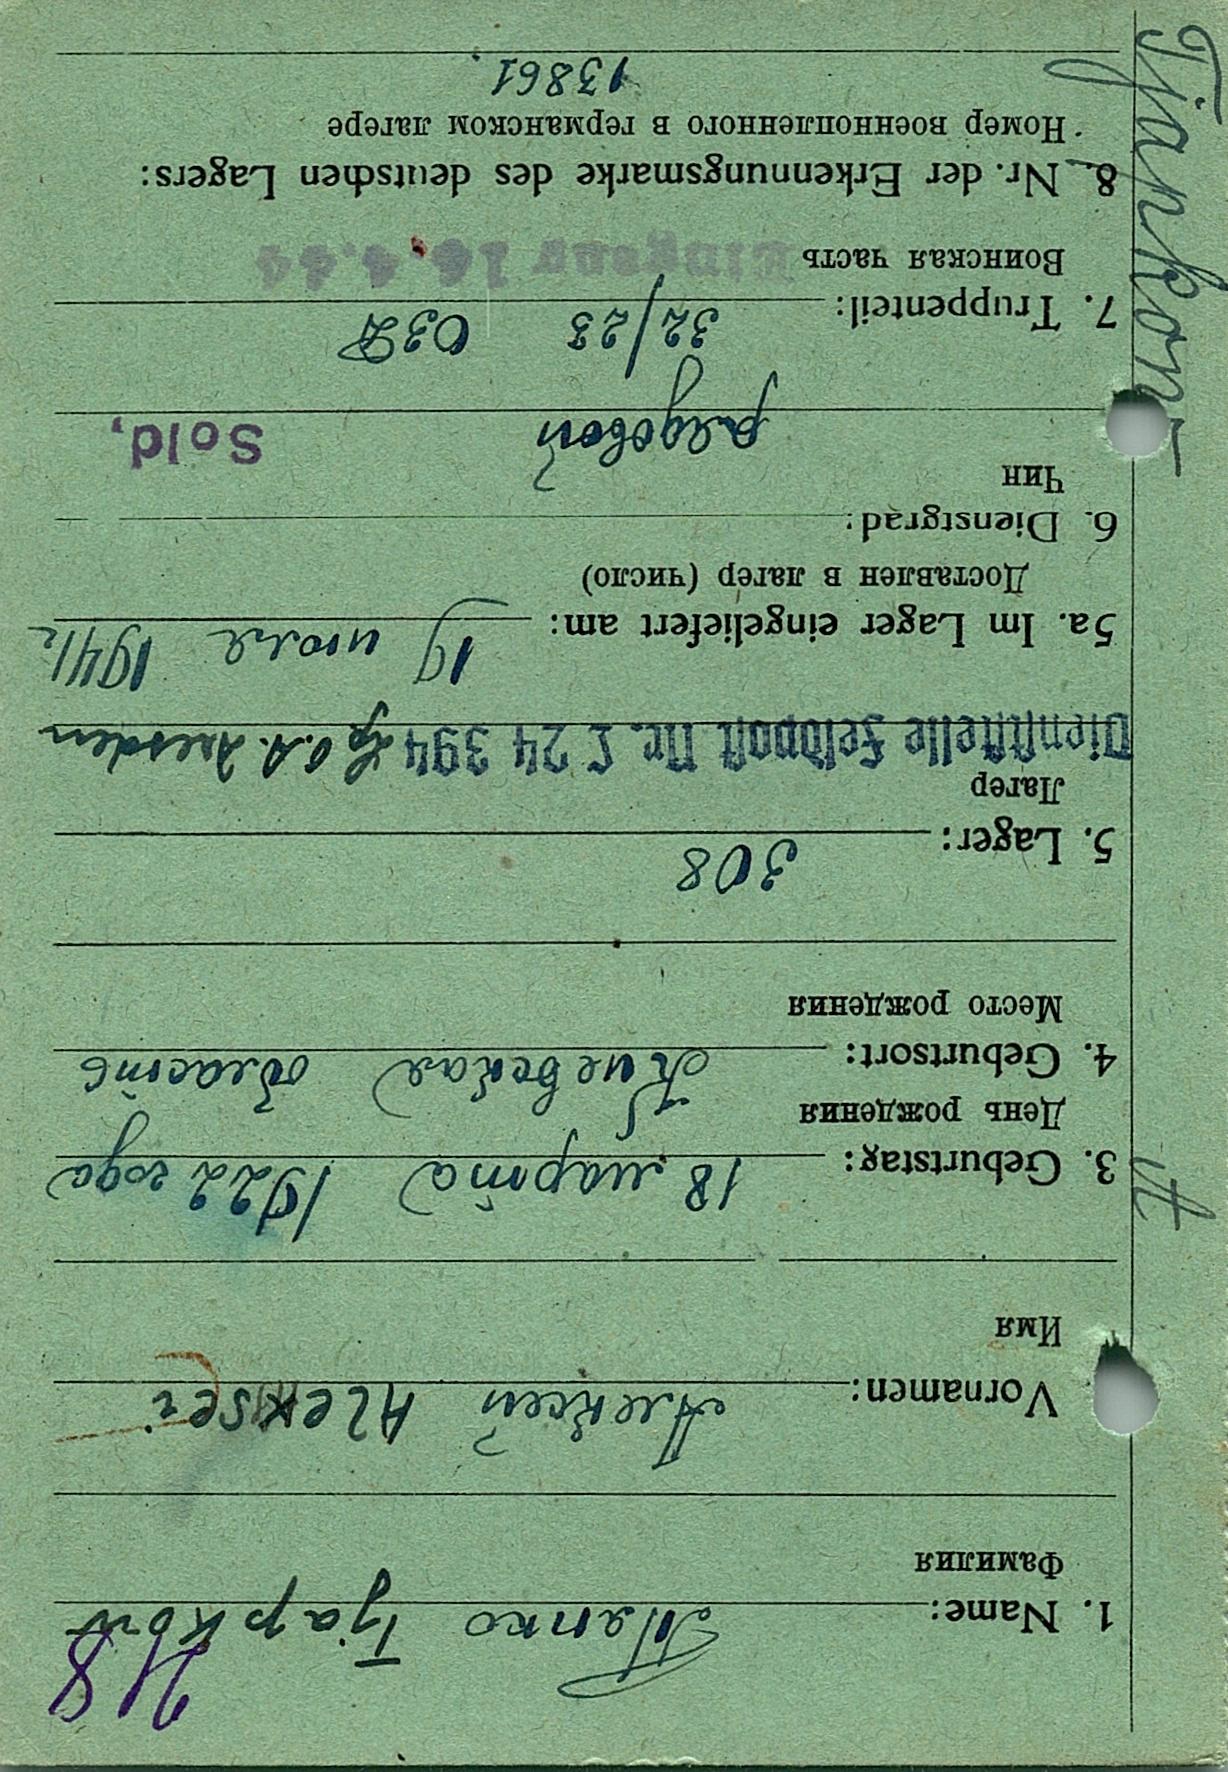 218
1. Name: Тяпко Tjapkow
Фамилия
Vornamen: Алексей Aleksei
Имя
3. Geburtstag: 18 марта 1922 года
День рождения
4. Geburtsort: Киевская область
Место рождения
5. Lager: 308
Лагер
Dienststelle Feldpost Nr. L 24 394 Lg. O.A. Dresden
5a. Im Lager eingeliefert am: 19 июля 1941 г
Доставлен в лагер (число)
6. Dienstgrad:
Чин
рядовой Sold.
7. Truppenteil: 32/23 ОЗД
Воинская часть
Eingang 16.4.44
8. Nr. der Erkennungsmarke des deutschen Lagers:
Номер военнопленного в германском лагере
13861.